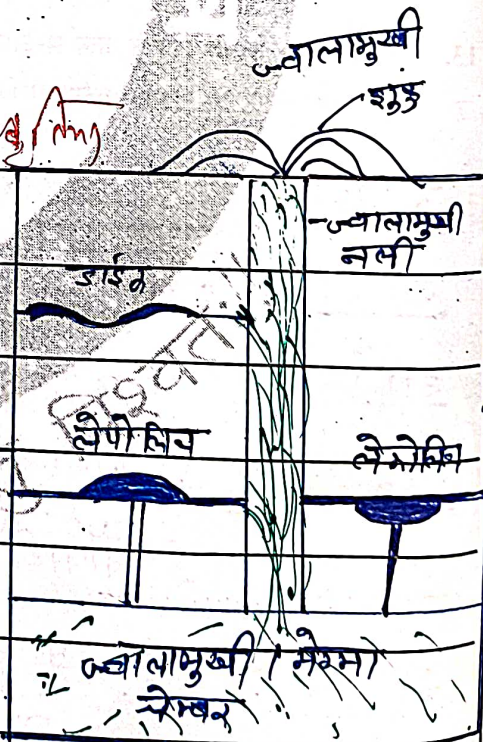 ज्वालामुखी
शंकु
ज्वालामुखी
नली
डाईक
लेपोलिथ
लेकोलिथ
ज्वालामुखी / मेग्मा
चेम्बर